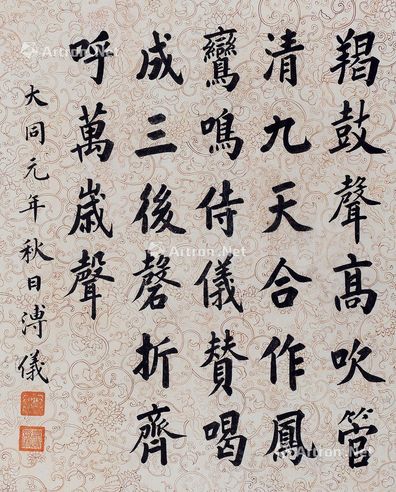 羯鼓聲高吹管
清九天合作鳳
鸞鳴侍儀贊喝
成三後磬折齊
呼萬歲聲
大同元年秋日溥儀
Artron.Net
Artron.Net
Artron.Net
Artron.Net